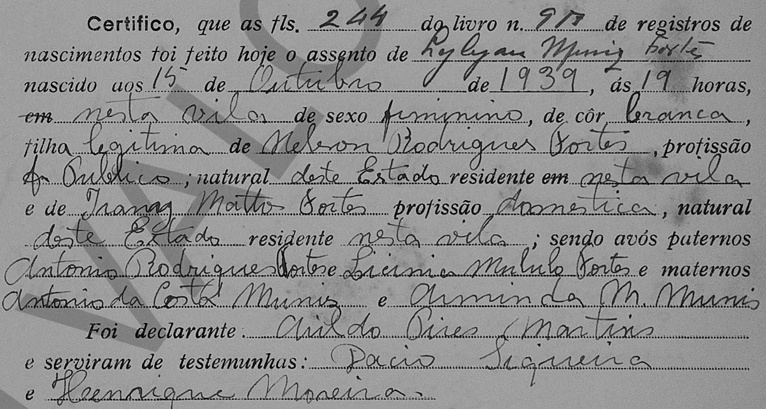 Certifico, que as fls. 244 do livro n. 9 de registros de
nascimentos foi feito hoje o assento de Lylyan Muniz Fortes
nascido aos 15 de Outubro de 1939, ás 19 horas,
em nesta vila de sexo feminino, de côr branca,
filha legitima de Nelson Rodrigues Fortes, profissão
f. Publico; natural deste Estado residente em nesta vila
e de Mattos Fortes profissão domestica, natural
deste Estado residente nesta vila; sendo avós paternos
Antonio Rodrigues Fortes e Licinia Fortes e maternos
Antonio da Costa Munis e Arminda M. Munis
Foi declarante. Arildo Pires Martins
e serviram de testemunhas: Dacio Siqueira
e Henrique Moreira.